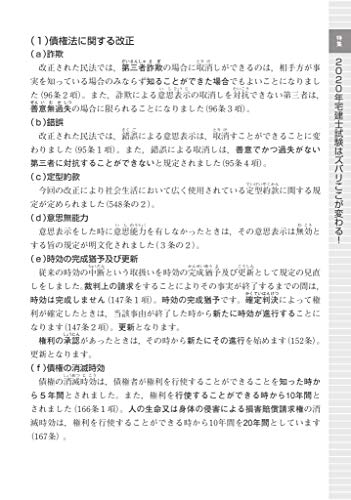 特集
2020年宅建士試験はズバリここが変わる!
(1)債権法に関する改正
(a)詐欺
改正された民法では、第三者詐欺の場合に取消しができるのは、相手方が事
実を知っている場合のみならず知ることができた場合でもよいことになりまし
た(96条2項)。また、詐欺による意思表示の取消しを対抗できない第三者は、
善意無過失の場合に限られることになりました(96条3項)。
(b)錯誤
改正された民法では、錯誤による意思表示は、取消すことができることに変
わりました(95条1項)。また、錯誤による取消しは、善意でかつ過失がない
第三者に対抗することができないと規定されました(95条4項)。
(c)定型約款
今回の改正により社会生活において広く使用されている定型約款に関する規
定が定められました(548条の2)。
(d)意思無能力
意思表示をした時に意思能力を有しなかったときは、その意思表示は無効と
する旨の規定が明文化されました(3条の2)。
(e)時効の完成猶予及び更新
従来の時効の中断という取扱いを時効の完成猶予及び更新として規定の見直
しをしました。裁判上の請求をすることによりその事由が終了するまでの間は、
時効は完成しません(147条1項)。時効の完成猶予です。確定判決によって権
利が確定したときは、当該事由が終了した時から新たに時効が進行することに
なります(147条2項)。更新となります。
権利の承認があったときは、その時から新たにその進行を始めます(152条)。
更新となります。
(f)債権の消滅時効
債権の消滅時効は、債権者が権利を行使することができることを知った時か
ら5年間とされました。また、権利を行使することができる時から10年間と
されました(166条1項)。人の生命又は身体の侵害による損害賠償請求権の消
滅時効は、権利を行使することができる時から10年間を20年間としています
(167条)。